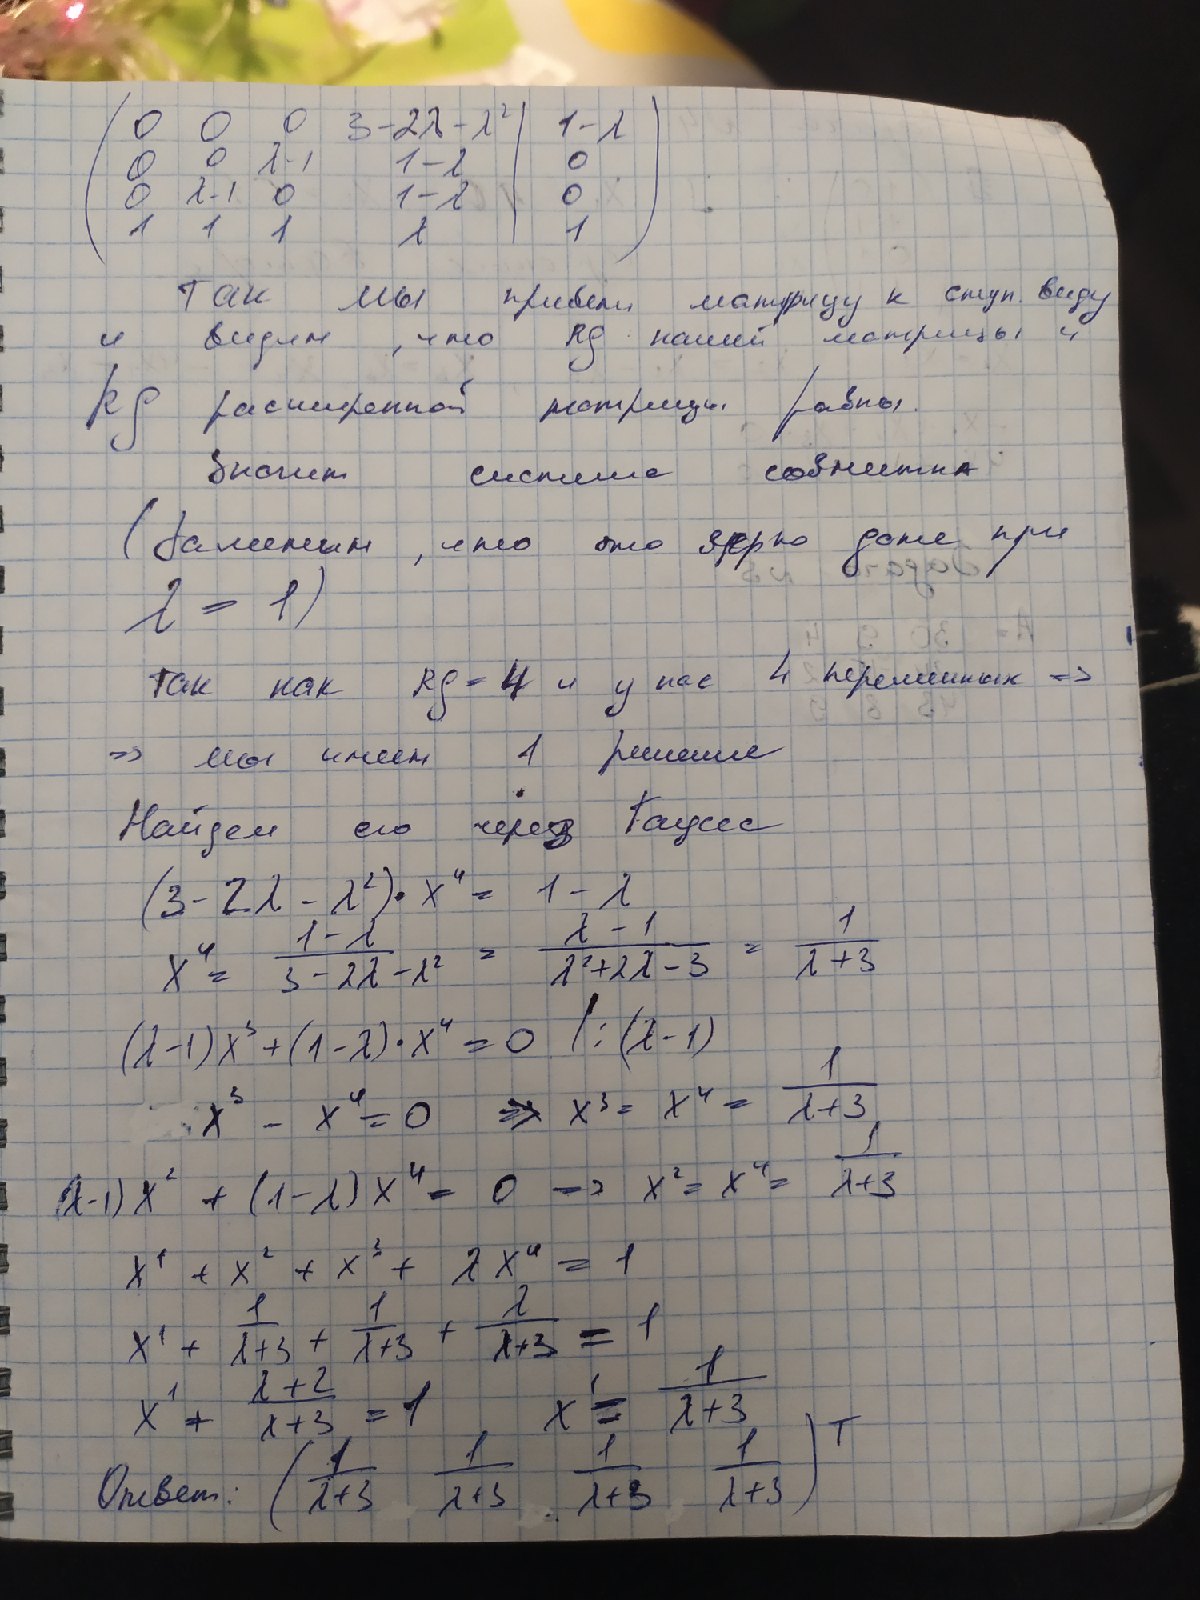 0 0 0 3-2λ-λ² | 1-λ
0 0 λ-1 1-λ | 0
0 λ-1 0 1-λ | 0
1 1 1 λ | 1
Так мы привели матрицу к ступ. виду
и видим, что Rg нашей матрицы и
Rg расширенной матрицы равны.
Значит система совместна
(Заметим, что это верно даже при
λ = 1)
Так как Rg = 4 и у нас 4 переменных =>
=> мы имеем 1 решение
Найдем его через Гаусса
(3-2λ-λ²)·x⁴ = 1-λ
x⁴ = (1-λ)/(3-2λ-λ²) = (λ-1)/(λ²+2λ-3) = 1/(λ+3)
(λ-1)x³+(1-λ)·x⁴ = 0 /:(λ-1)
x³ - x⁴ = 0 => x³ = x⁴ = 1/(λ+3)
(λ-1)x² + (1-λ)x⁴ = 0 => x² = x⁴ = 1/(λ+3)
x¹ + x² + x³ + λx⁴ = 1
x¹ + 1/(λ+3) + 1/(λ+3) + λ/(λ+3) = 1
x¹ + (λ+2)/(λ+3) = 1 x¹ = 1/(λ+3)
Ответ: (1/(λ+3) 1/(λ+3) 1/(λ+3) 1/(λ+3))ᵀ